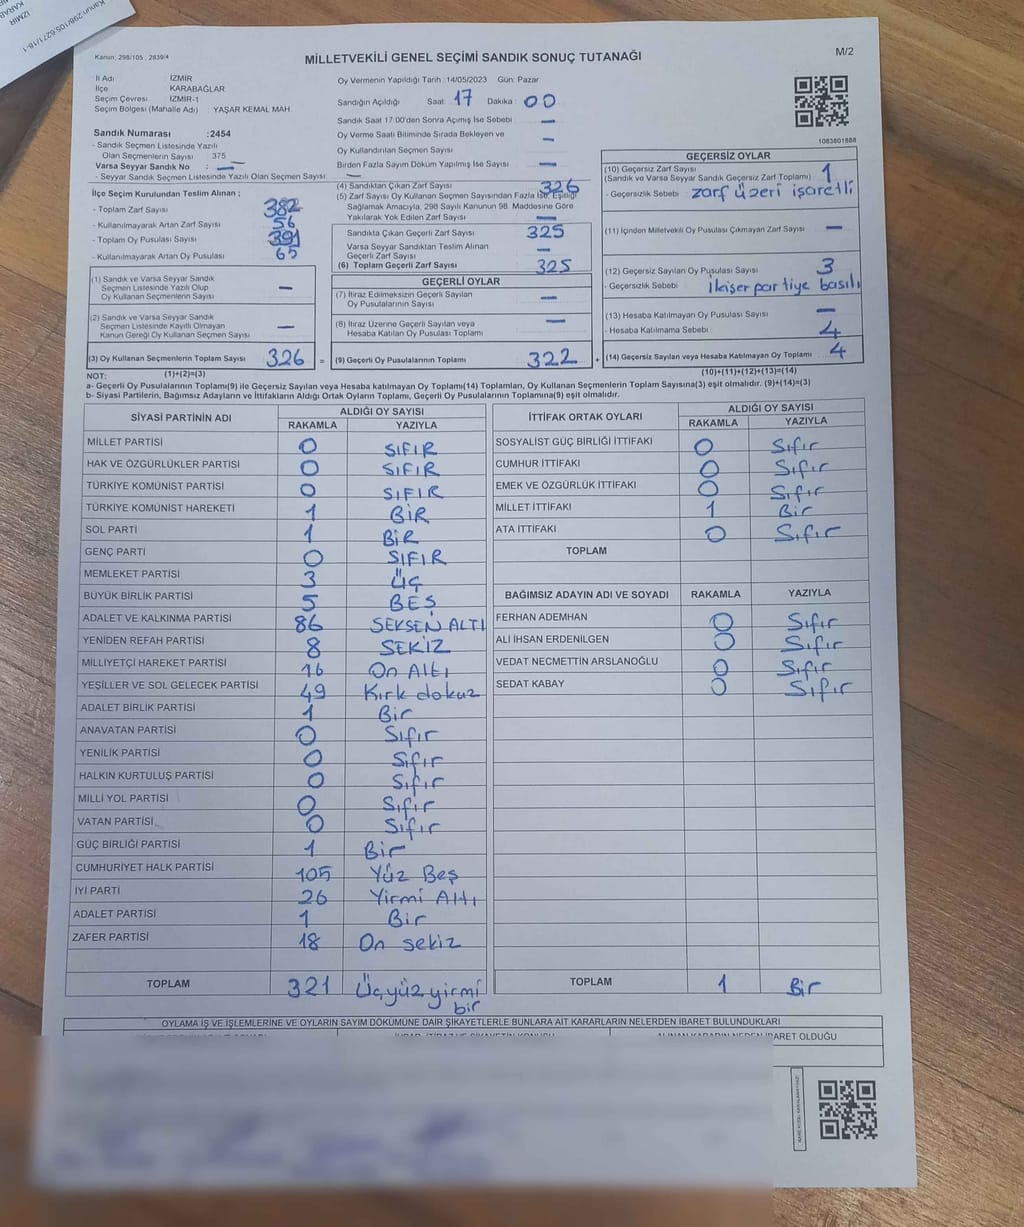 Kanun: 298/105, 2839/4
MİLLETVEKİLİ GENEL SEÇİMİ SANDIK SONUÇ TUTANAĞI
M/2
İl Adı İZMİR
İlçe KARABAĞLAR
Seçim Çevresi İZMİR-1
Seçim Bölgesi (Mahalle Adı) YAŞAR KEMAL MAH.
Sandık Numarası :2454
- Sandık Seçmen Listesinde Yazılı
Olan Seçmenlerin Sayısı 375
Varsa Seyyar Sandık No : —
- Seyyar Sandık Seçmen Listesinde Yazılı Olan Seçmen Sayısı —
İlçe Seçim Kurulundan Teslim Alınan ;
- Toplam Zarf Sayısı 382
- Kullanılmayarak Artan Zarf Sayısı 56
- Toplam Oy Pusulası Sayısı 391
- Kullanılmayarak Artan Oy Pusulası 65
(1) Sandık ve Varsa Seyyar Sandık
Seçmen Listesinde Yazılı Olup
Oy Kullanan Seçmenlerin Sayısı —
(2) Sandık ve Varsa Seyyar Sandık
Seçmen Listesinde Kayıtlı Olmayan
Kanun Gereği Oy Kullanan Seçmen Sayısı —
(3) Oy Kullanan Seçmenlerin Toplam Sayısı 326 =
Oy Vermenin Yapıldığı Tarih :14/05/2023 Gün: Pazar
Sandığın Açıldığı Saat: 17 Dakika : 00
Sandık Saat 17:00'den Sonra Açımış İse Sebebi : —
Oy Verme Saati Bitiminde Sırada Bekleyen ve
Oy Kullandırılan Seçmen Sayısı —
Birden Fazla Sayım Döküm Yapılmış İse Sayısı —
(4) Sandıktan Çıkan Zarf Sayısı 326
(5) Zarf Sayısı Oy Kullanan Seçmen Sayısından Fazla İse, Eşitliği
Sağlamak Amacıyla, 298 Sayılı Kanunun 98. Maddesine Göre
Yakılarak Yok Edilen Zarf Sayısı —
Sandıkta Çıkan Geçerli Zarf Sayısı 325
Varsa Seyyar Sandıktan Teslim Alınan
Geçerli Zarf Sayısı —
(6) Toplam Geçerli Zarf Sayısı 325
GEÇERLİ OYLAR
(7) İtiraz Edilmeksizin Geçerli Sayılan
Oy Pusulalarının Sayısı —
(8) İtiraz Üzerine Geçerli Sayılan veya
Hesaba Katılan Oy Pusulası Toplamı —
(9) Geçerli Oy Pusulalarının Toplamı 322 +
1083801888
GEÇERSİZ OYLAR
(10) Geçersiz Zarf Sayısı
(Sandık ve Varsa Seyyar Sandık Geçersiz Zarf Toplamı) 1
- Geçersizlik Sebebi zarf üzeri işaretli
(11) İçinden Milletvekili Oy Pusulası Çıkmayan Zarf Sayısı —
(12) Geçersiz Sayılan Oy Pusulası Sayısı 3
- Geçersizlik Sebebi İkişer partiye basılı
(13) Hesaba Katılmayan Oy Pusulası Sayısı —
- Hesaba Katılmama Sebebi 4
(14) Geçersiz Sayılan veya Hesaba Katılmayan Oy Toplamı 4
NOT: (1)+(2)=(3) (10)+(11)+(12)+(13)=(14)
a- Geçerli Oy Pusulalarının Toplamı(9) ile Geçersiz Sayılan veya Hesaba katılmayan Oy Toplamı(14) Toplamları, Oy Kullanan Seçmenlerin Toplam Sayısına(3) eşit olmalıdır. (9)+(14)=(3)
b- Siyasi Partilerin, Bağımsız Adayların ve İttifakların Aldığı Ortak Oyların Toplamı, Geçerli Oy Pusulalarının Toplamına(9) eşit olmalıdır.
SİYASİ PARTİNİN ADI ALDIĞI OY SAYISI
RAKAMLA YAZIYLA
MİLLET PARTİSİ 0 SIFIR
HAK VE ÖZGÜRLÜKLER PARTİSİ 0 SIFIR
TÜRKİYE KOMÜNİST PARTİSİ 0 SIFIR
TÜRKİYE KOMÜNİST HAREKETİ 1 BİR
SOL PARTİ 1 BİR
GENÇ PARTİ 0 SIFIR
MEMLEKET PARTİSİ 3 ÜÇ
BÜYÜK BİRLİK PARTİSİ 5 BEŞ
ADALET VE KALKINMA PARTİSİ 86 SEKSEN ALTI
YENİDEN REFAH PARTİSİ 8 SEKİZ
MİLLİYETÇİ HAREKET PARTİSİ 16 On Altı
YEŞİLLER VE SOL GELECEK PARTİSİ 49 Kırk dokuz
ADALET BİRLİK PARTİSİ 1 Bir
ANAVATAN PARTİSİ 0 Sıfır
YENİLİK PARTİSİ 0 Sıfır
HALKIN KURTULUŞ PARTİSİ 0 Sıfır
MİLLİ YOL PARTİSİ 0 Sıfır
VATAN PARTİSİ 0 Sıfır
GÜÇ BİRLİĞİ PARTİSİ 1 Bir
CUMHURİYET HALK PARTİSİ 105 Yüz Beş
İYİ PARTİ 26 Yirmi Altı
ADALET PARTİSİ 1 Bir
ZAFER PARTİSİ 18 On sekiz
TOPLAM 321 Üçyüz yirmi
bir
İTTİFAK ORTAK OYLARI ALDIĞI OY SAYISI
RAKAMLA YAZIYLA
SOSYALİST GÜÇ BİRLİĞİ İTTİFAKI 0 Sıfır
CUMHUR İTTİFAKI 0 Sıfır
EMEK VE ÖZGÜRLÜK İTTİFAKI 0 Sıfır
MİLLET İTTİFAKI 1 Bir
ATA İTTİFAKI 0 Sıfır
TOPLAM
BAĞIMSIZ ADAYIN ADI VE SOYADI RAKAMLA YAZIYLA
FERHAN ADEMHAN 0 Sıfır
ALİ İHSAN ERDENİLGEN 0 Sıfır
VEDAT NECMETTİN ARSLANOĞLU 0 Sıfır
SEDAT KABAY 0 Sıfır
TOPLAM 1 Bir
OYLAMA İŞ VE İŞLEMLERİNE VE OYLARIN SAYIM DÖKÜMÜNE DAİR ŞİKAYETLERLE BUNLARA AİT KARARLARIN NELERDEN İBARET BULUNDUKLARI
ALINAN KARARIN NEDEN İBARET OLDUĞU